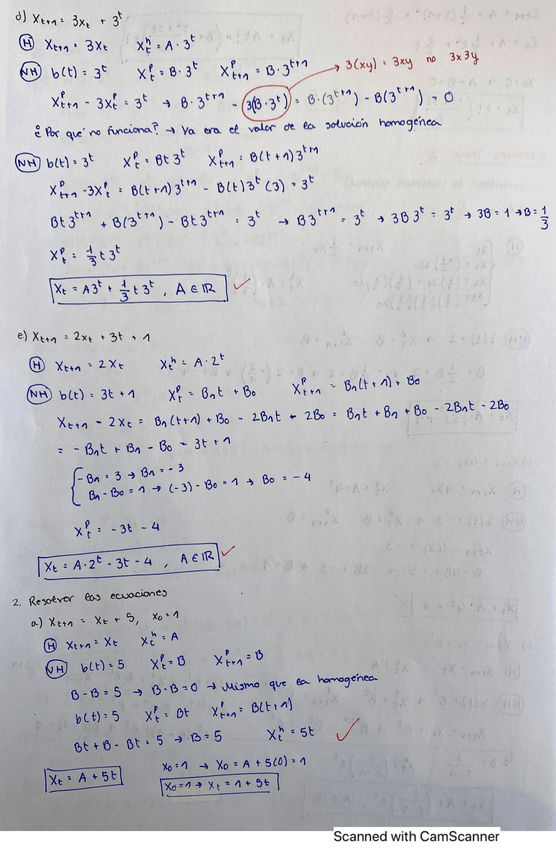 d) Xt+1 = 3Xt + 3^t
(H) Xt+1 = 3Xt   Xt^h = A · 3^t
(NH) b(t) = 3^t   Xt^p = B · 3^t   Xt+1^p = B · 3^t+1   → 3(xy) = 3xy no 3x3y
Xt+1^p - 3Xt^p = 3^t → B · 3^t+1 - 3(B · 3^t) = B · (3^t+1) - B(3^t+1) = 0
¿Por qué no funciona? → Ya era el valor de la solución homogénea
(NH) b(t) = 3^t   Xt^p = Bt3^t   Xt+1^p = B(t+1)3^t+1
Xt+1^p - 3Xt^p = B(t+1)3^t+1 - B(t)3^t(3) = 3^t
Bt3^t+1 + B(3^t+1) - Bt3^t+1 = 3^t → B3^t+1 = 3^t → 3B3^t = 3^t → 3B = 1 → B = 1/3
Xt^p = 1/3 t3^t
Xt = A3^t + 1/3 t3^t , A ∈ ℝ ✓
e) Xt+1 = 2Xt + 3t + 1
(H) Xt+1 = 2Xt   Xt^h = A · 2^t
(NH) b(t) = 3t + 1   Xt^p = B1t + B0   Xt+1^p = B1(t+1) + B0
Xt+1 - 2Xt = B1(t+1) + B0 - 2B1t - 2B0 = B1t + B1 + B0 - 2B1t - 2B0
= -B1t + B1 - B0 = 3t + 1
{ -B1 = 3 → B1 = -3
B1 - B0 = 1 → (-3) - B0 = 1 → B0 = -4
Xt^p = -3t - 4
Xt = A · 2^t - 3t - 4 , A ∈ ℝ ✓
2. Resolver las ecuaciones
a) Xt+1 = Xt + 5, X0 = 1
(H) Xt+1 = Xt   Xt^h = A
(NH) b(t) = 5   Xt^p = B   Xt+1^p = B
B - B = 5 → B - B = 0 → Mismo que la homogénea
b(t) = 5   Xt^p = Bt   Xt+1^p = B(t+1)
Bt + B - Bt = 5 → B = 5   Xt^h = 5t ✓
Xt = A + 5t   X0 = 1 → X0 = A + 5(0) = 1
X0 = 1 → Xt = 1 + 5t
Scanned with CamScanner